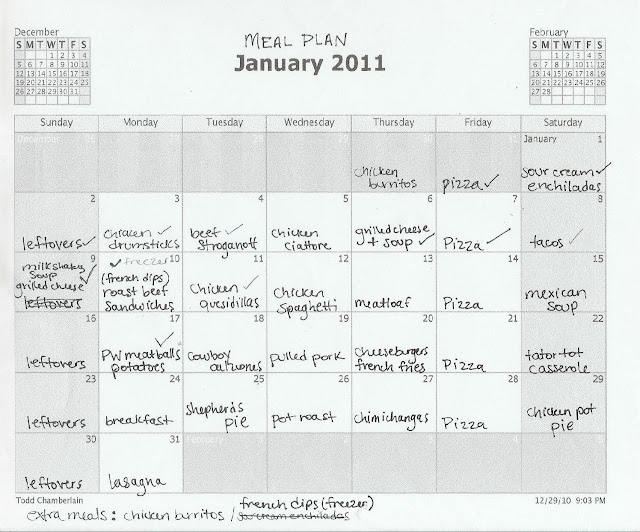 MEAL PLAN
January 2011
December
S M T W T F S
1 2 3 4
5 6 7 8 9 10 11
12 13 14 15 16 17 18
19 20 21 22 23 24 25
26 27 28 29 30 31
February
S M T W T F S
1 2 3 4 5
6 7 8 9 10 11 12
13 14 15 16 17 18 19
20 21 22 23 24 25 26
27 28
Sunday Monday Tuesday Wednesday Thursday Friday Saturday
December
January 1
chicken burritos
pizza ✓
sour cream ✓ enchiladas
2 3 4 5 6 7 8
leftovers ✓
chicken ✓ drumsticks
beef ✓ stroganoff
chicken ciattore
grilled cheese + soup ✓
Pizza ✓
tacos ✓
9 10 11 12 13 14 15
milkshakes soup grilled cheese ✓ leftovers
✓ freezer (french dips) roast beef sandwiches
Chicken ✓ quesidillas
Chicken Spaghetti
meatloaf
Pizza
mexican soup
16 17 18 19 20 21 22
leftovers
PW meatballs ✓ potatoes
cowboy calzones
pulled pork
cheeseburgers french fries
Pizza
tator tot casserole
23 24 25 26 27 28 29
leftovers
breakfast
shepherds pie
pot roast
chimichangas
Pizza
chicken pot pie
30 31 February
leftovers
lasagna
Todd Chamberlain
12/29/10 9:03 PM
french dips (freezer)
extra meals: chicken burritos / sour cream enchiladas